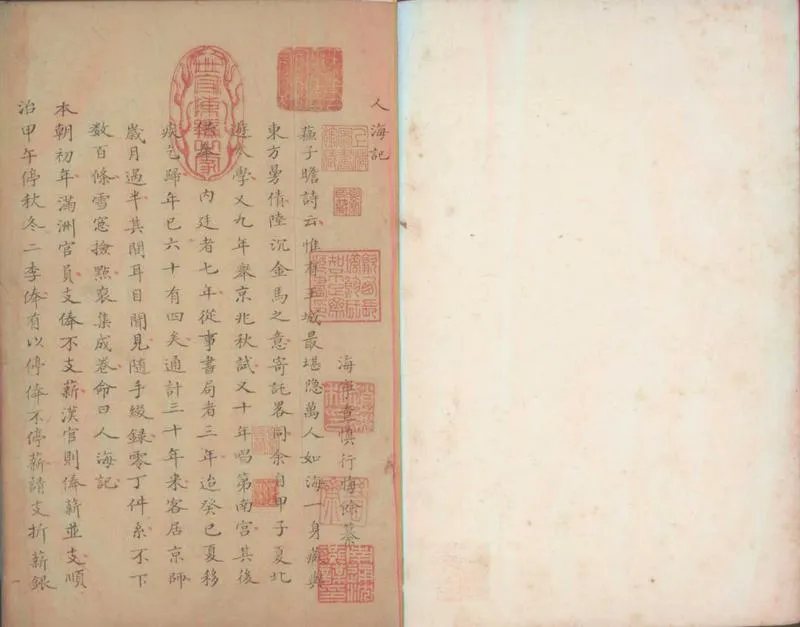 人海記
海寧查慎行悔餘纂
蘇子瞻詩云惟有王城最堪隐萬人如海一身藏與
東方曼倩陸沉金馬之意寄託畧同余自甲子夏北
遊太學又九年舉京兆秋試又十年唱第南宫其後
供奉内廷者七年從事書局者三年迨癸巳夏移
疾乞歸年已六十有四矣通計三十年来客居京師
歲月過半其間耳目聞見随手綴録零丁件系不下
数百條雪窓撿點裒集成卷命曰人海記
本朝初年滿洲官員支俸不支薪漢官則俸薪並支順
治甲午停秋冬二季俸有以停俸不停薪請支折薪銀